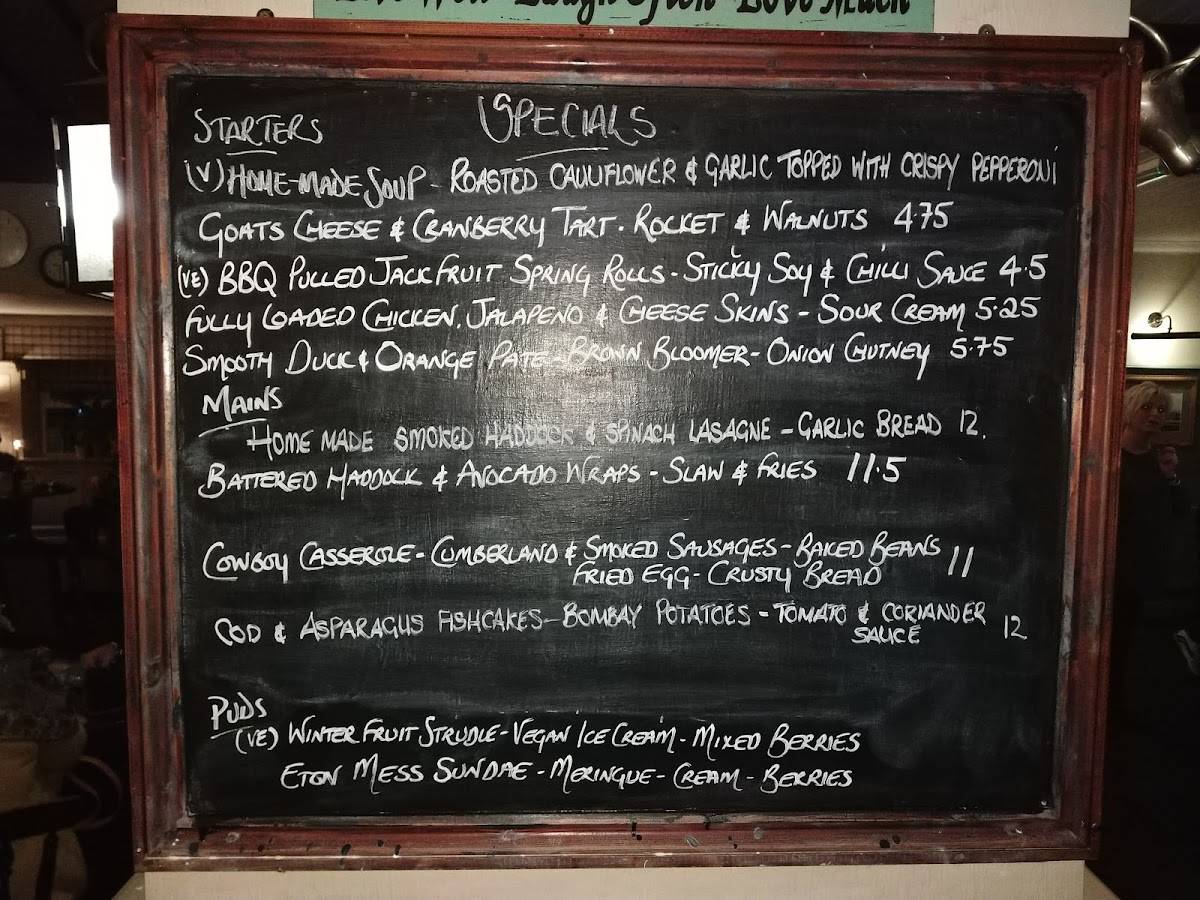 Live Well · Laugh Often · Love Much
STARTERS
SPECIALS
(V) HOME-MADE SOUP - ROASTED CAULIFLOWER & GARLIC TOPPED WITH CRISPY PEPPERONI
GOATS CHEESE & CRANBERRY TART. ROCKET & WALNUTS 4.75
(VE) BBQ PULLED JACK FRUIT SPRING ROLLS - STICKY SOY & CHILLI SAUCE 4.5
FULLY LOADED CHICKEN, JALAPENO & CHEESE SKINS - SOUR CREAM 5.25
SMOOTH DUCK & ORANGE PATE - BROWN BLOOMER - ONION CHUTNEY 5.75
MAINS
HOME MADE SMOKED HADDOCK & SPINACH LASAGNE - GARLIC BREAD 12.
BATTERED HADDOCK & AVOCADO WRAPS - SLAW & FRIES 11.5
COWBOY CASSEROLE - CUMBERLAND & SMOKED SAUSAGES - BAKED BEANS 11
FRIED EGG - CRUSTY BREAD
COD & ASPARAGUS FISHCAKES - BOMBAY POTATOES - TOMATO & CORIANDER
SAUCE 12
PUDS
(VE) WINTER FRUIT STRUDLE - VEGAN ICE CREAM - MIXED BERRIES
ETON MESS SUNDAE - MERINGUE - CREAM - BERRIES